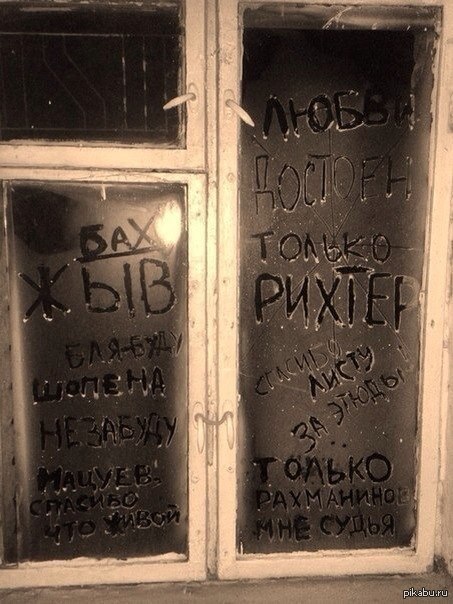 БАХ
ЖЫВ
БЛЯ БУДУ
ШОПЕНА
НЕ ЗАБУДУ
МАЦУЕВ-
СПАСИБО
ЧТО ЖИВОЙ
ЛЮБВИ
ДОСТОЕН
ТОЛЬКО
РИХТЕР
СПАСИБО
ЛИСТУ
ЗА ЭТЮДЫ!
ТОЛЬКО
РАХМАНИНОВ
МНЕ СУДЬЯ
pikabu.ru